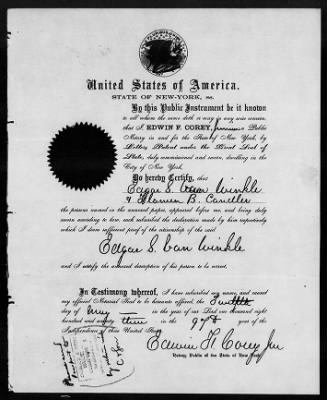 United States of America.
STATE OF NEW-YORK, ss.
By this Public Instrument be it known
to all whom the same doth or may in any wise concern,
that I EDWIN F. COREY, Junior a Public
Notary in and for the State of New York, by
Letters Patent under the Great Seal of
State, duly commissioned and sworn, dwelling in the
City of New York,
Do hereby Certify, that
Edgar S. Van Winkle
& Flamen B. Candler
the persons named in the annexed paper, appeared before me, and being duly
sworn according to law, each subscribed the declaration made by them respectively
which I deem sufficient proof of the citizenship of the said
Edgar S. Van Winkle
and I certify the annexed description of his person to be correct.
In Testimony whereof, I have subscribed my name, and caused
my official Notarial Seal to be hereunto affixed, the Twelfth
day of May in the year of our Lord one thousand eight
hundred and seventy three in the 97th year of the
Independence of these United States.
Edwin F. Corey Jun
Notary Public of the State of New York